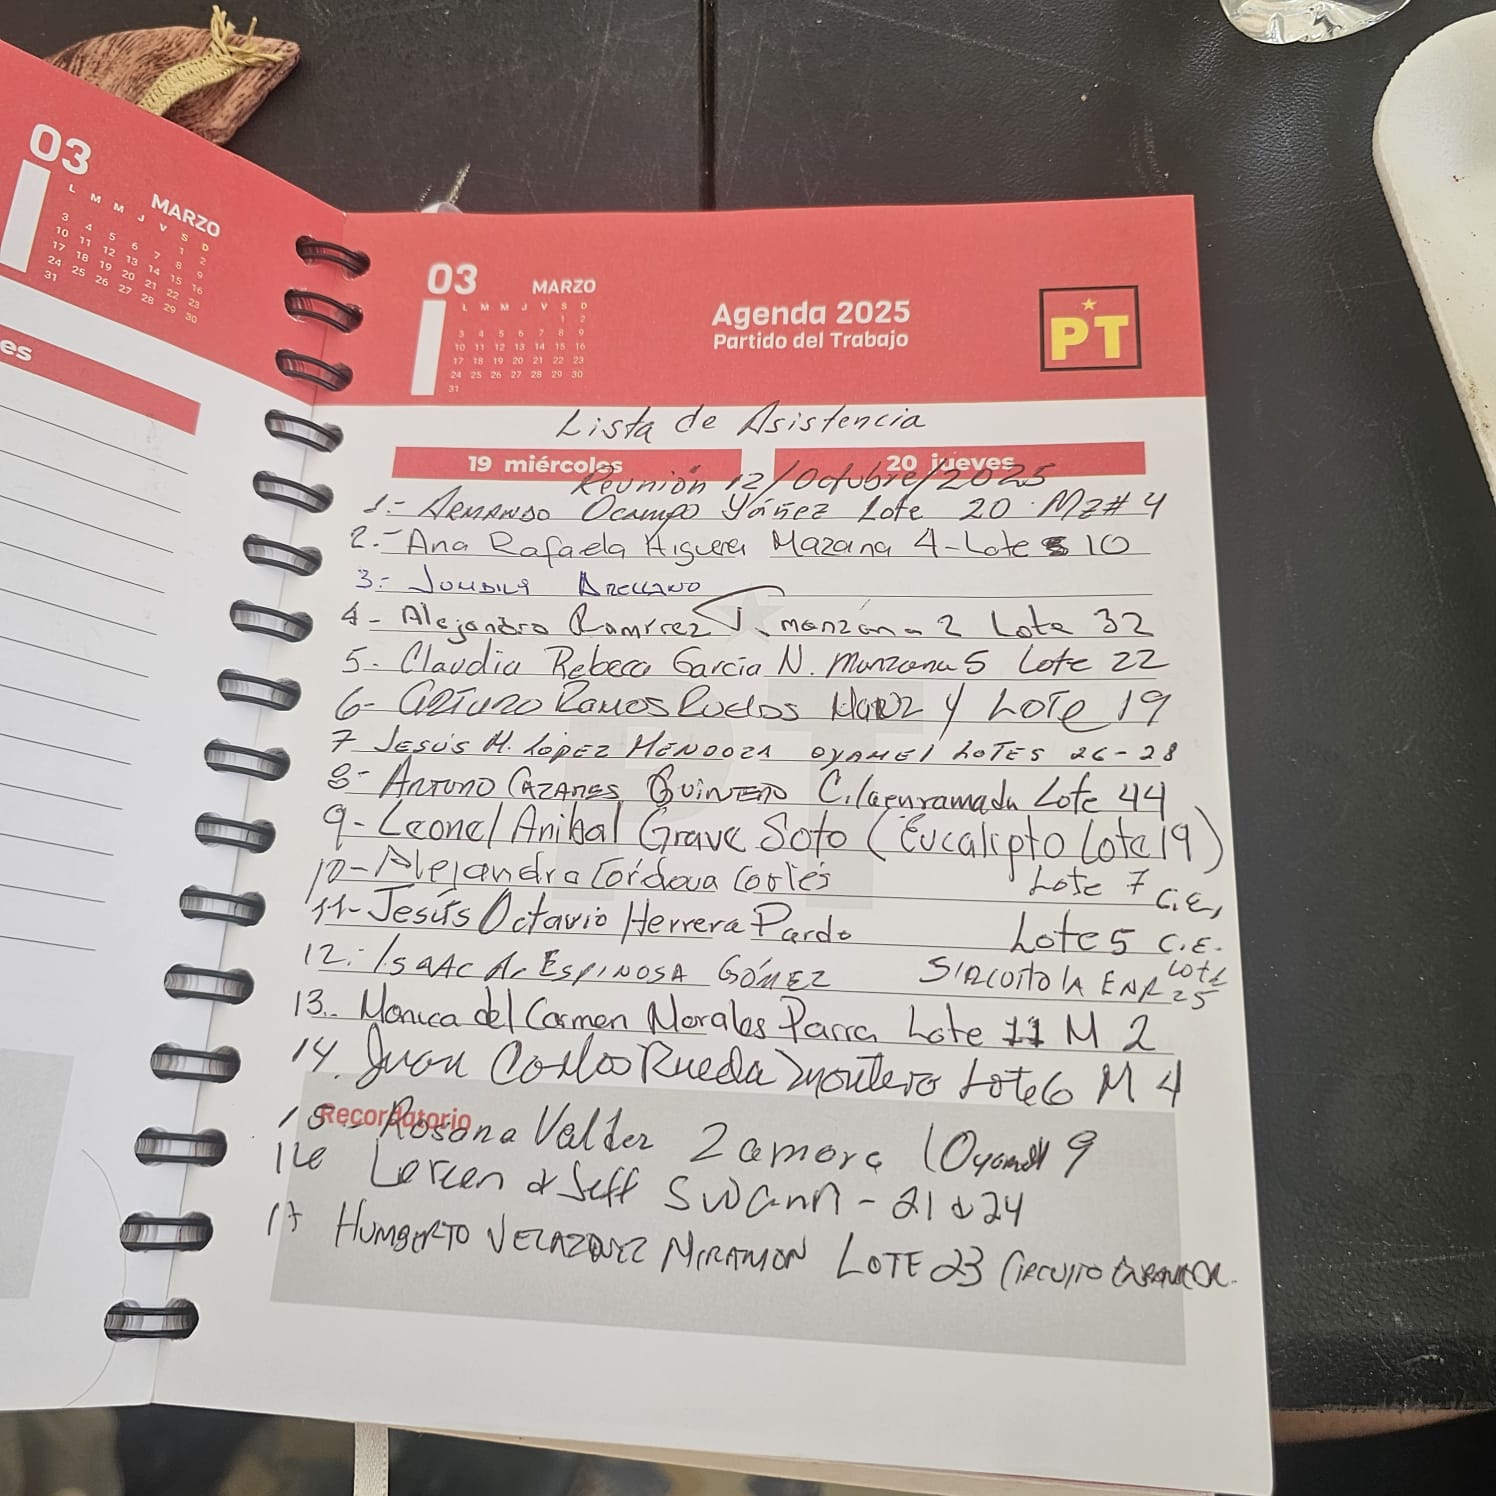 03
MARZO
L M M J V S D
1 2
3 4 5 6 7 8 9
10 11 12 13 14 15 16
17 18 19 20 21 22 23
24 25 26 27 28 29 30
31
es
03
MARZO
L M M J V S D
1 2
3 4 5 6 7 8 9
10 11 12 13 14 15 16
17 18 19 20 21 22 23
24 25 26 27 28 29 30
31
Agenda 2025
Partido del Trabajo
PT
Lista de Asistencia
19 miércoles
20 jueves
Reunión 12/Octubre/2025
1.- ARMANDO Ocampo Yáñez Lote 20 Mz#4
2.- Ana Rafaela Higuera Mazana 4-Lote 10
3.- Arellano
4- Alejandro Ramírez J. manzana 2 Lote 32
5- Claudia Rebeca Garcia N. Manzana 5 Lote 22
6- ARTURO Ramos Lote 19
7 JESÚS M. LÓPEZ MENDOZA OYAMEL LOTES 26-28
8- ARTURO CAZARES QUINTERO C. laenramada Lote 44
9- Leonel Anibal Grave Soto (Eucalipto Lote 19)
10- Alejandra Córdova Cortés Lote 7 C.E,
11- Jesús Octavio Herrera Pardo Lote 5 C.E.
12.- ISAAC A. ESPINOSA GÓMEZ SIRCUITO LA ENR LOTE 25
13.- Monica del Carmen Morales Parra Lote 11 M 2
14. Juan Carlos Rueda Montero Lote 6 M 4
Recordatorio
15- Rosana Valdez Zamora Oyamel 9
16 & Jeff Swann - 21 & 24
17 HUMBERTO VELAZQUEZ MIRAMON LOTE 23 CIRCUITO